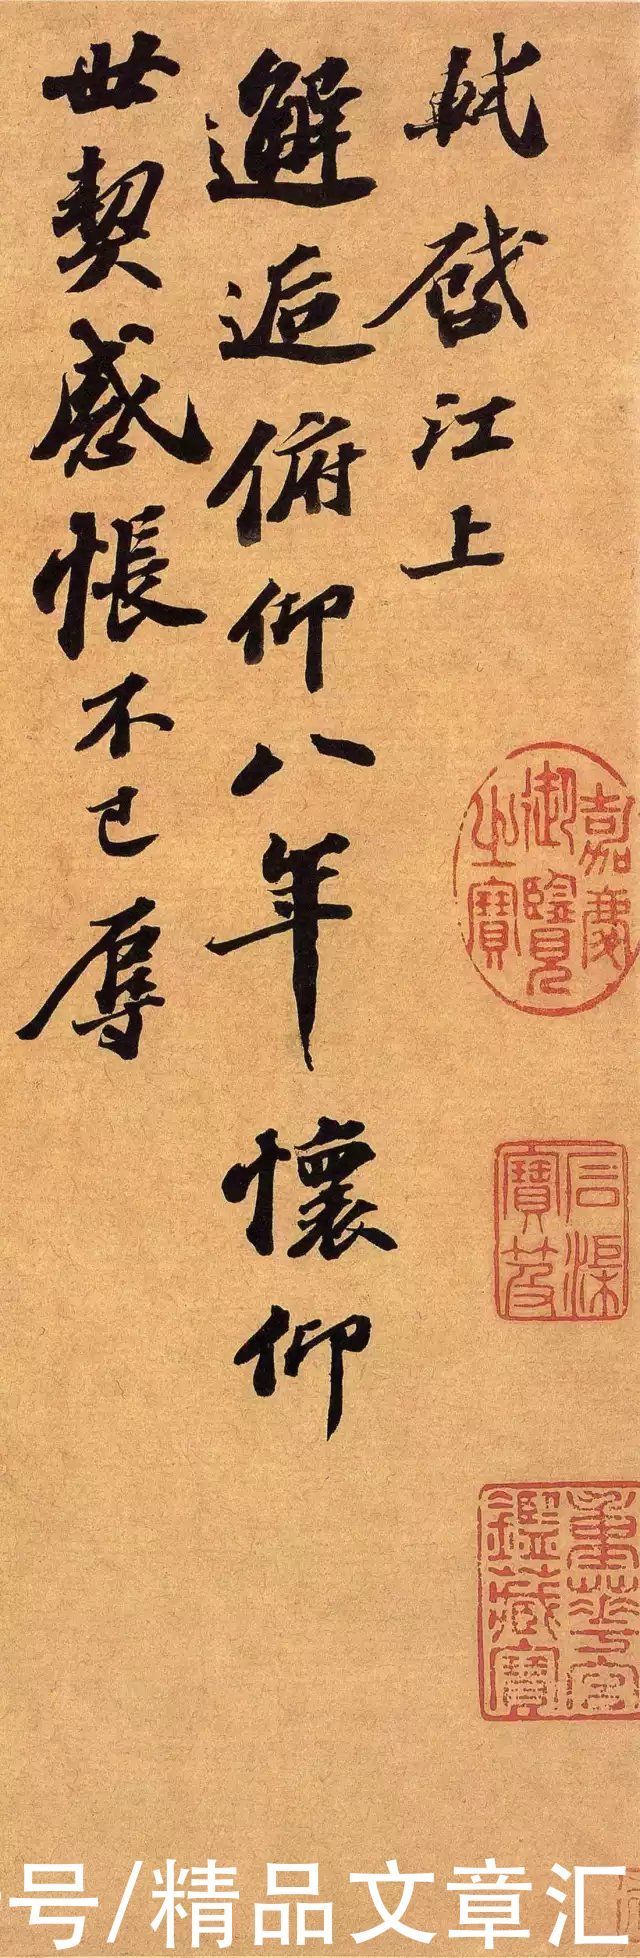 軾啓江上
邂逅俯仰八年懷仰
世契感悵不已辱
嘉慶
御覽
之寶
石渠
寶笈
重華宮
鑑藏寶
号/精品文章汇